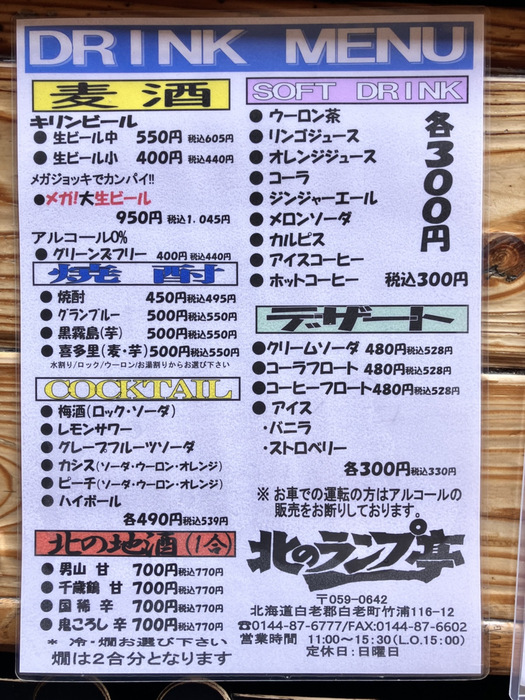 DRINK MENU
麦酒
キリンビール
● 生ビール中 550円 税込605円
● 生ビール小 400円 税込440円
メガジョッキでカンパイ!!
●メガ!大生ビール
950円 税込1.045円
アルコール0%
● グリーンズフリー 400円 税込440円
焼酎
● 焼酎 450円税込495円
● グランブルー 500円税込550円
● 黒霧島(芋) 500円税込550円
● 喜多里(麦・芋)500円税込550円
水割り/ロック/ウーロン/お湯割りからお選び下さい
COCKTAIL
● 梅酒(ロック・ソーダ)
● レモンサワー
● グレープフルーツソーダ
● カシス(ソーダ・ウーロン・オレンジ)
● ピーチ(ソーダ・ウーロン・オレンジ)
● ハイボール
各490円税込539円
北の地酒(1合)
● 男山 甘 700円税込770円
● 千歳鶴 甘 700円税込770円
● 国稀 辛 700円税込770円
● 鬼ころし 辛 700円税込770円
* 冷・燗お選び下さい
燗は2合分となります
SOFT DRINK
● ウーロン茶
● リンゴジュース
● オレンジジュース
● コーラ
● ジンジャーエール
● メロンソーダ
● カルピス
● アイスコーヒー
● ホットコーヒー
各300円
税込300円
デザート
●クリームソーダ 480円税込528円
●コーラフロート 480円税込528円
●コーヒーフロート480円税込528円
● アイス
・バニラ
・ストロベリー
各300円税込330円
※ お車での運転の方はアルコールの
販売をお断りしております。
北のランプ亭
〒059-0642
北海道白老郡白老町竹浦116-12
☎0144-87-6777/FAX:0144-87-6602
営業時間 11:00〜15:30(L.O.15:00)
定休日:日曜日